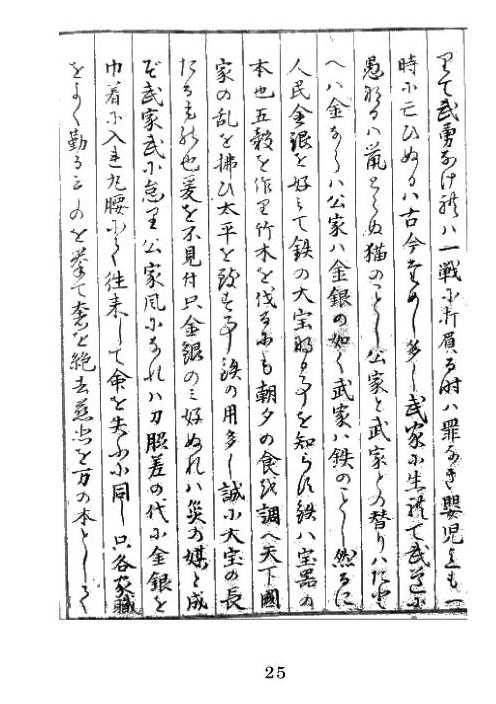 里て武勇なけれハ一戦に打負る時ハ罪なき嬰児迄も一
時に亡ひぬるハ古今ためし多し武家に生れて武道に
愚なるハ鼠とらぬ猫のことし公家と武家との替りハたと
へハ金ならハ公家ハ金銀の如く武家ハ鉄のことし然るに
人民金銀を好ミて鉄の大宝なる事を知らす鉄ハ宝器の
本也五穀を作里竹木を伐るにも朝夕の食を調へ天下國
家の乱を拂ひ太平を致す事鉄の用多し誠に大宝の長
たるもの也爰を不見付只金銀のミ好ぬれハ災の媒と成
そ武家武に怠里公家風になれハ刀脇差の代に金銀を
巾着に入れ丸腰にて往来して命を失ふに同し只各家職
をよく勤る
を挙て奢を絶去
を万の本としるへく
25